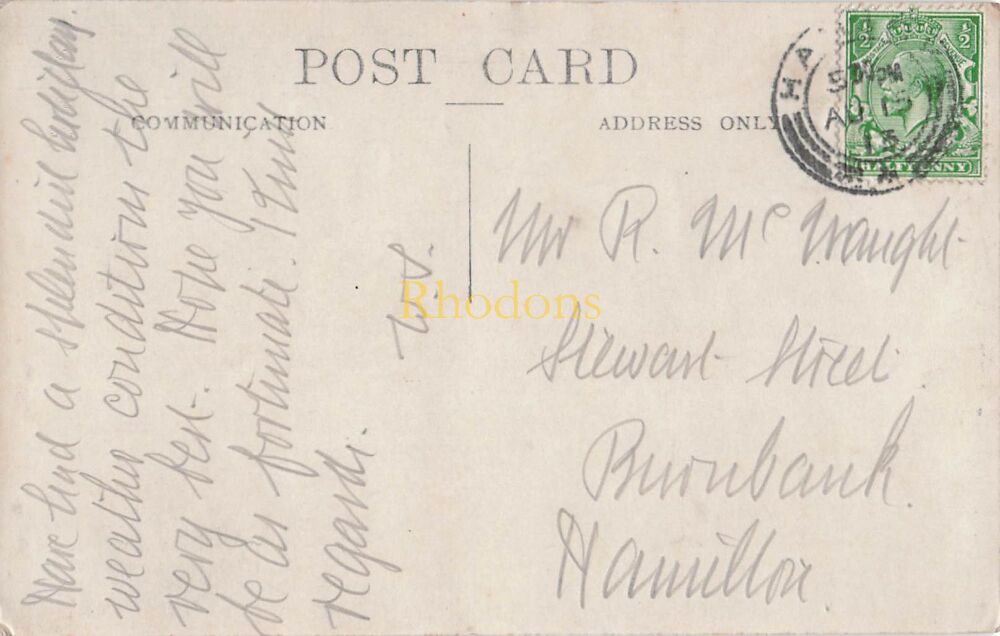 POST CARD
COMMUNICATION
ADDRESS ONLY
Have had a splendid holiday.
weather conditions the
very best. Hope you will
be as fortunate. Kind
regards.
W.S.
Mr R. McNaught
Stewart Street
Burnbank
Hamilton.
Rhodons
HA
5 PM
AU
15
1/2
1/2
HALFPENNY